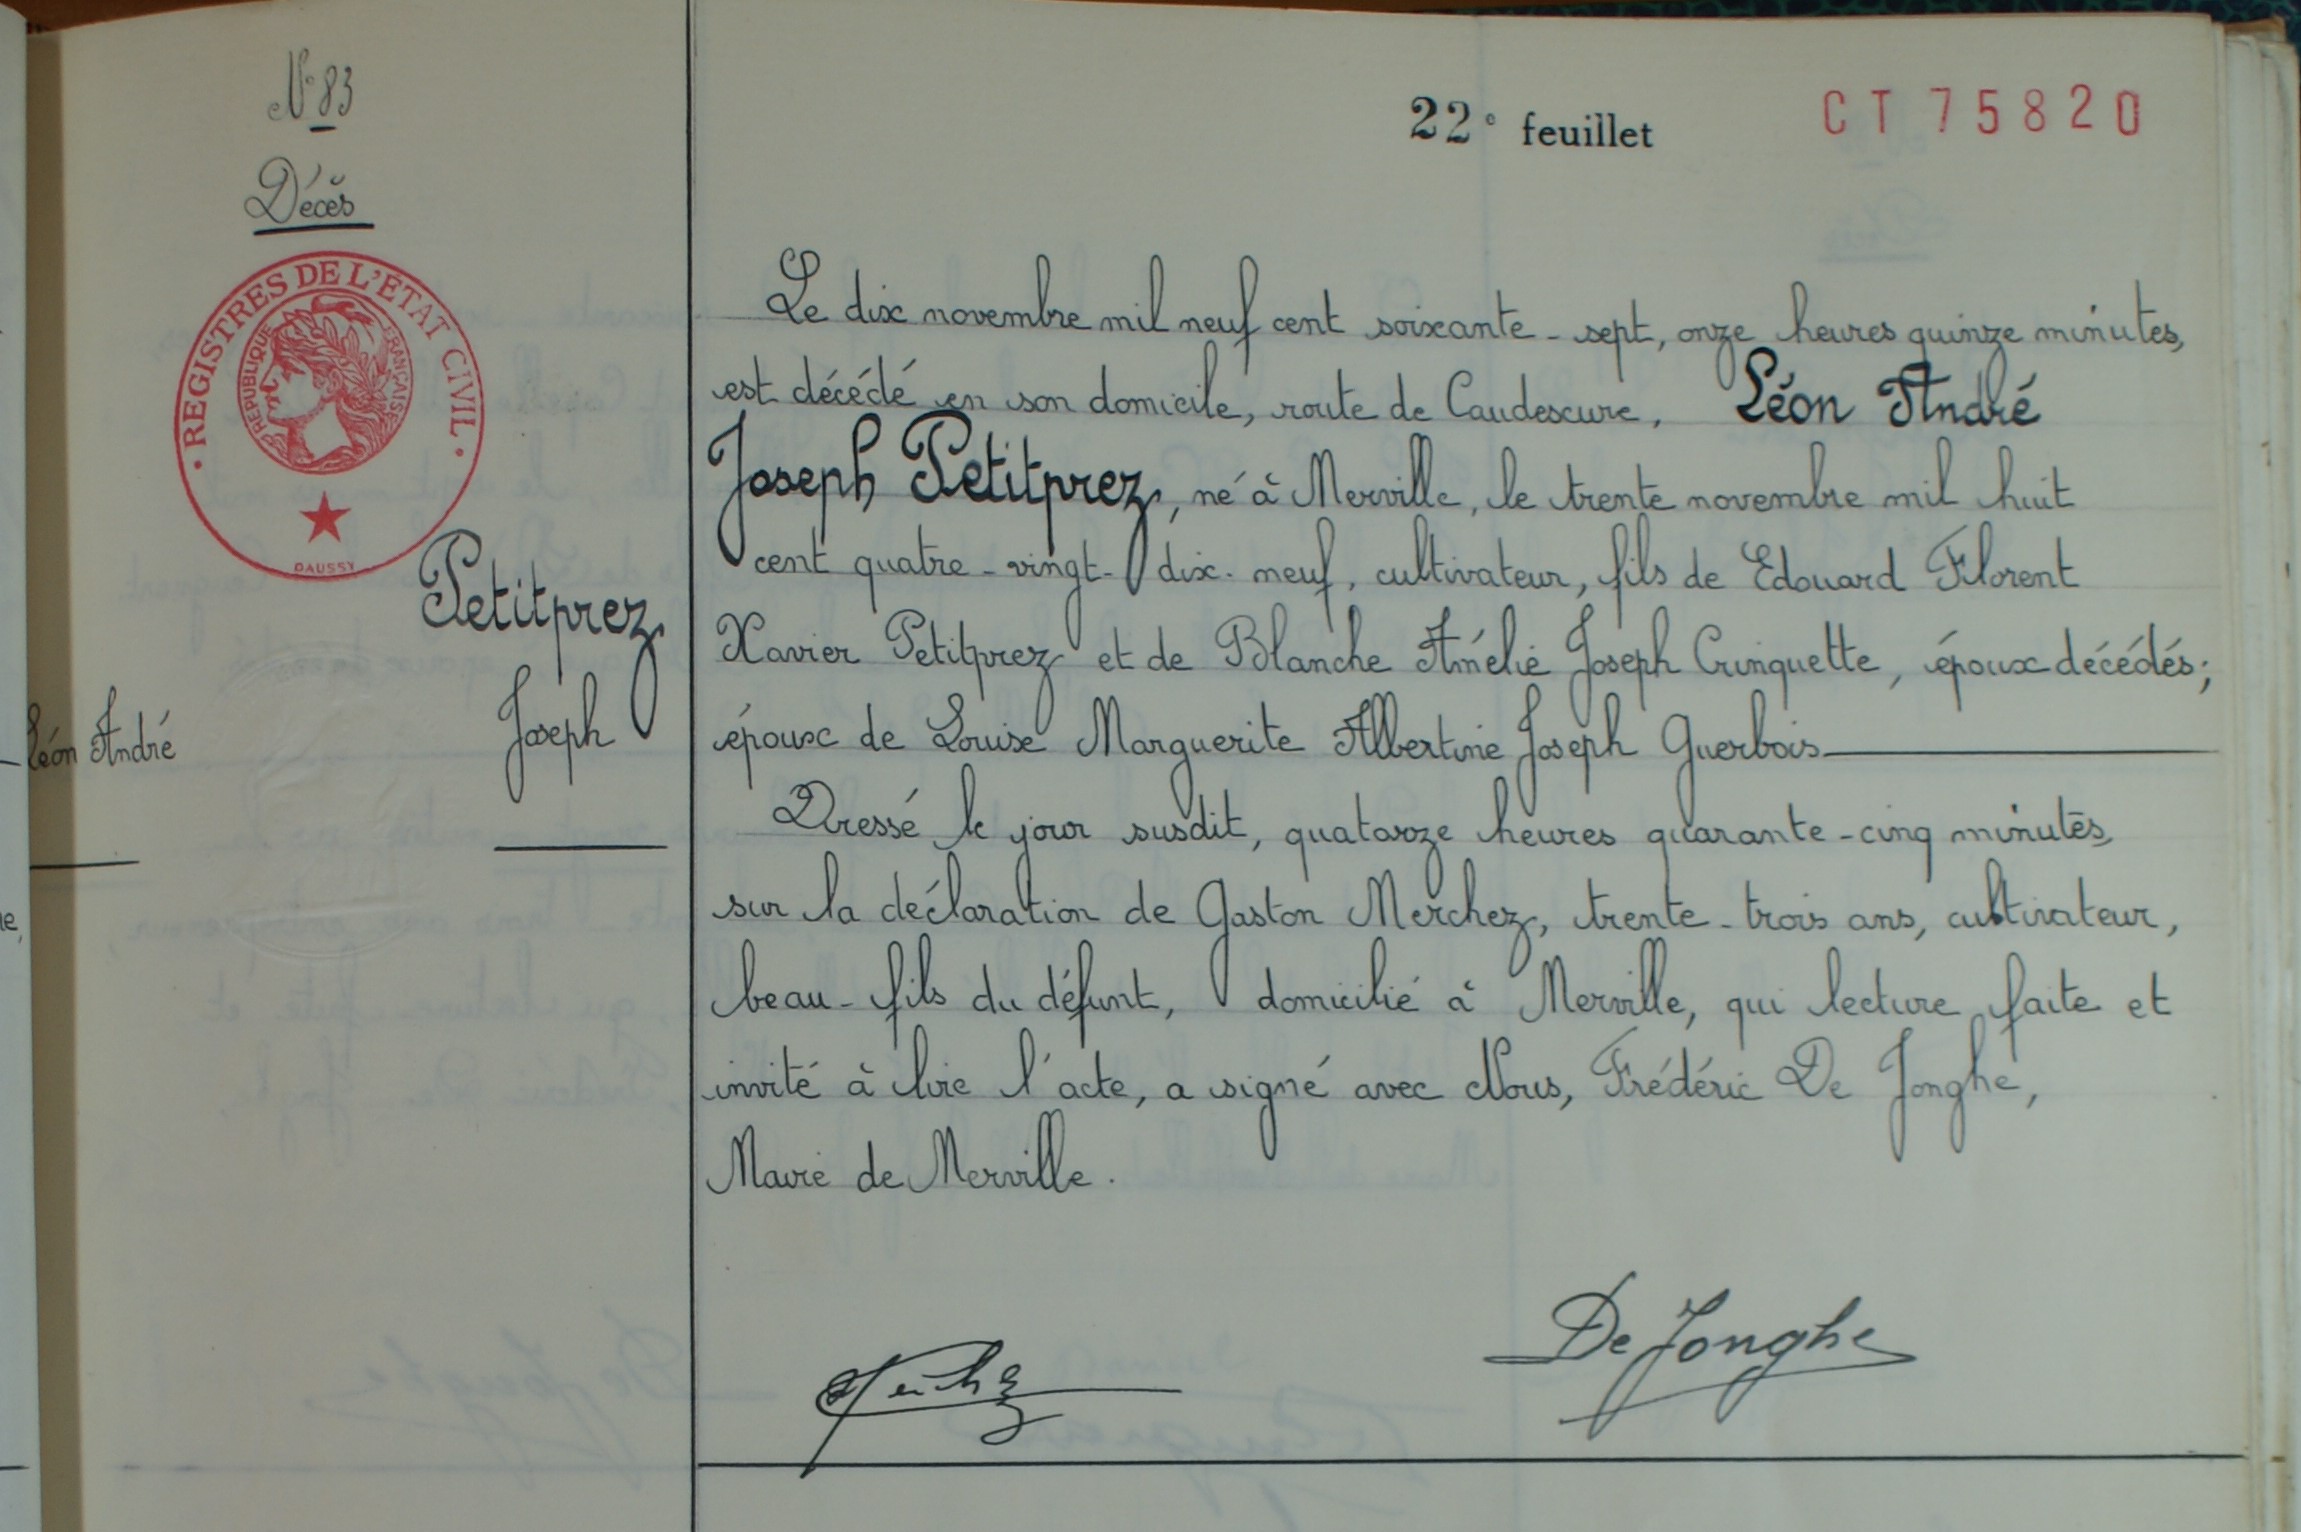 N° 83
Décès
REGISTRES DE L'ÉTAT CIVIL
REPUBLIQUE FRANÇAISE
DAUSSY
Petitprez
Léon André
Joseph
22e feuillet
CT 75820
Le dix novembre mil neuf cent soixante-sept, onze heures quinze minutes,
est décédé en son domicile, route de Caudescure, Léon André
Joseph Petitprez, né à Merville, le trente novembre mil huit
cent quatre-vingt-dix-neuf, cultivateur, fils de Edouard Florent
Xavier Petitprez et de Blanche Amélie Joseph Cunquette, époux décédés;
époux de Louise Marguerite Albertine Joseph Guerbois
Dressé le jour susdit, quatorze heures quarante-cinq minutes,
sur la déclaration de Gaston Merchez, trente-trois ans, cultivateur,
beau-fils du défunt, domicilié à Merville, qui lecture faite et
invité à lire l'acte, a signé avec Nous, Frédéric De Jonghe,
Maire de Merville.
De Jonghe